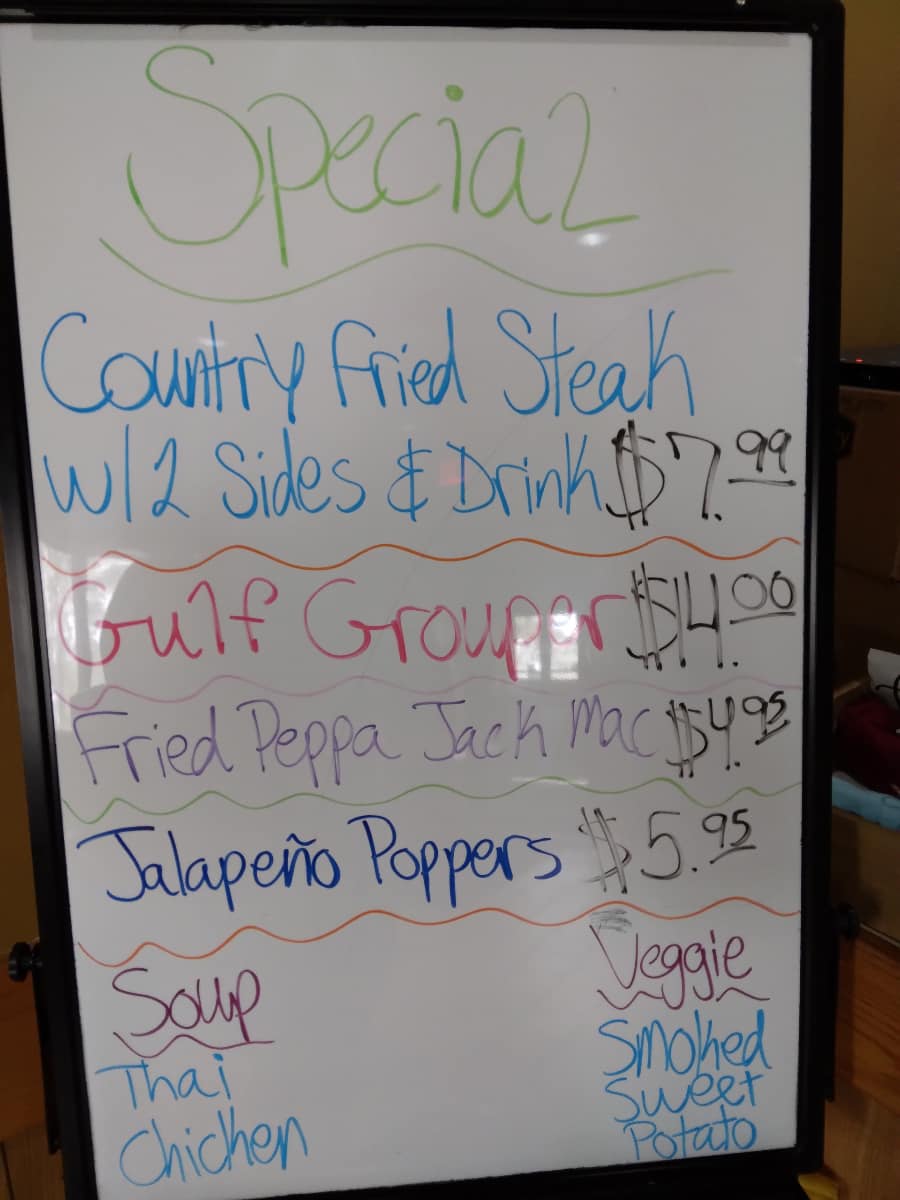 Special
Country Fried Steak
W/2 Sides & Drink $7.99
Gulf Grouper $14.00
Fried Peppa Jack Mac $4.95
Jalapeño Poppers $5.95
Soup
Thai
Chicken
Veggie
Smoked
Sweet
Potato